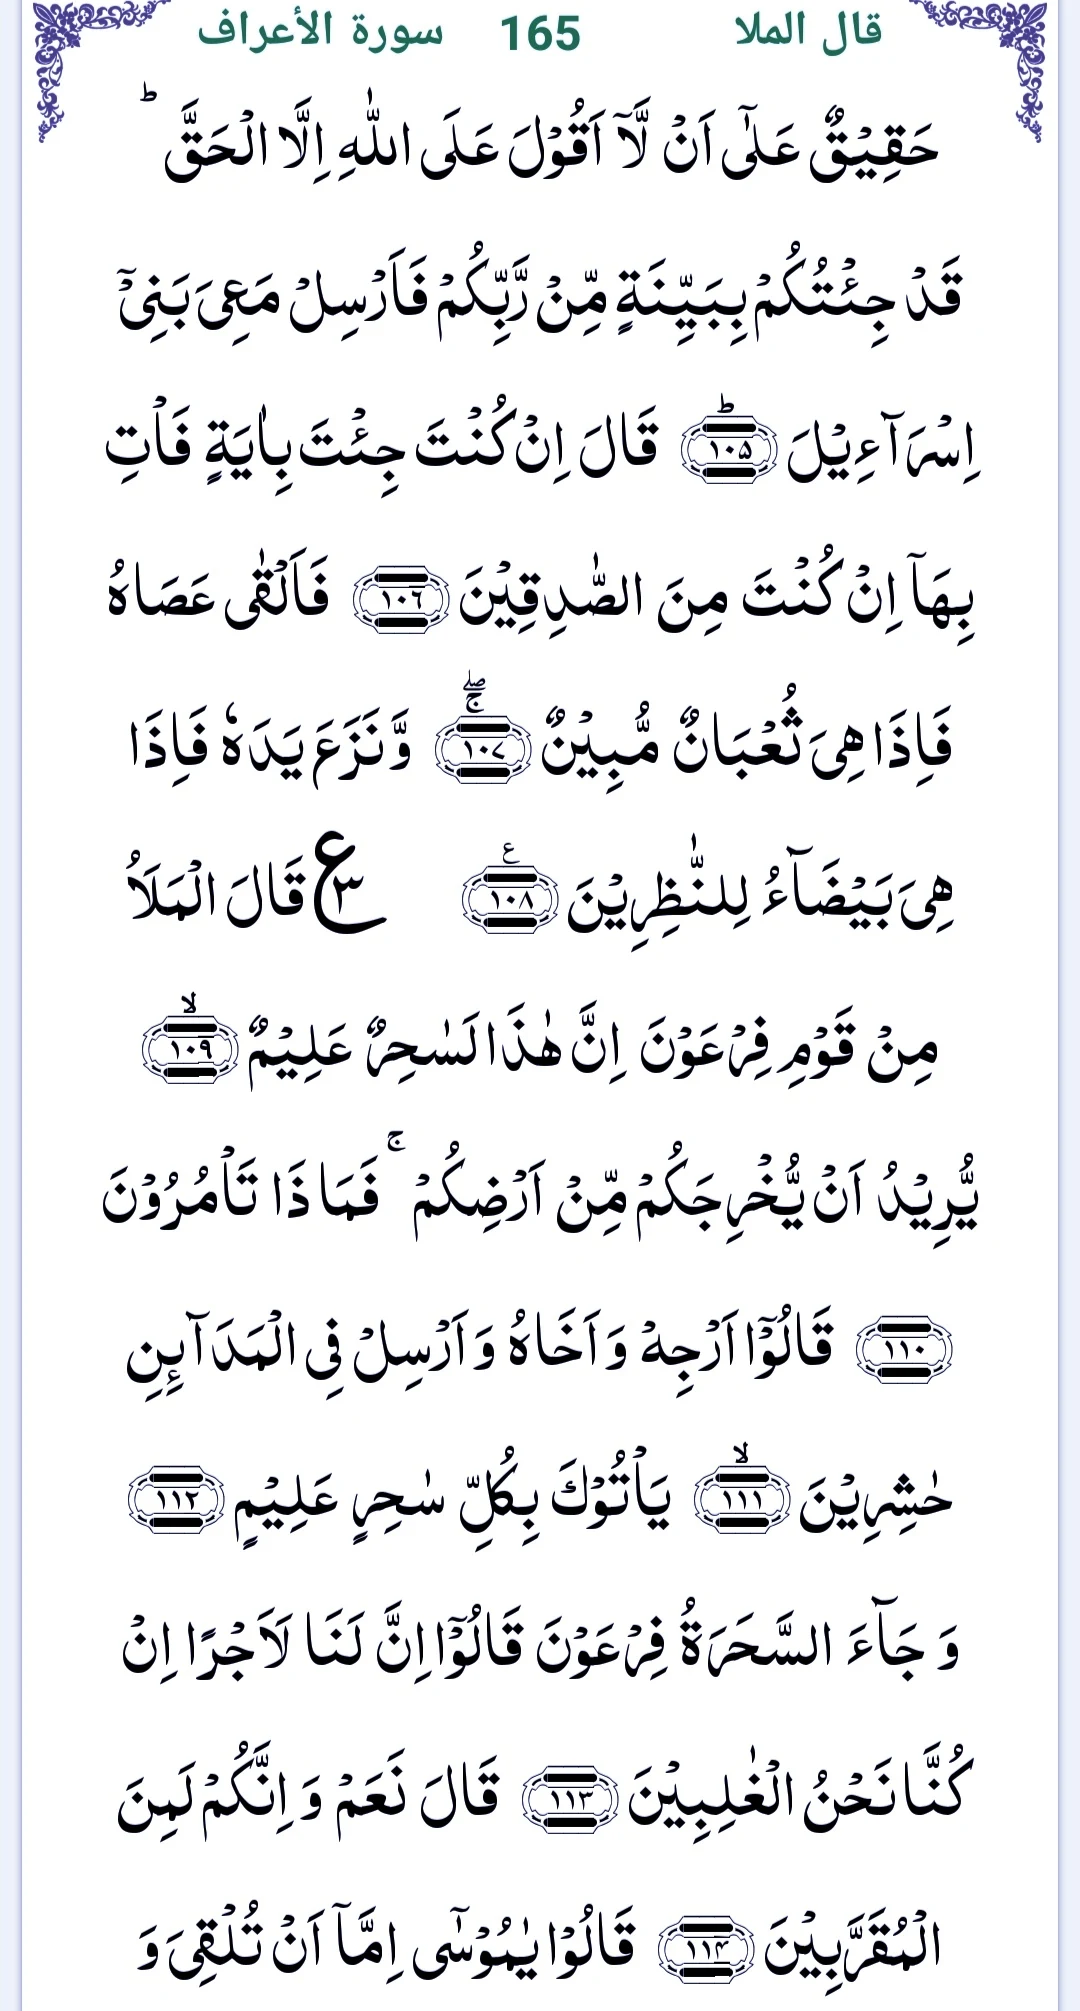 قال الملا 165 سورة الأعراف
حَقِيۡقٌ عَلٰٓى اَنۡ لَّاۤ اَقُوۡلَ عَلَى اللّٰهِ اِلَّا الۡحَقَّ ؕ
قَدۡ جِئۡتُكُمۡ بِبَيِّنَةٍ مِّنۡ رَّبِّكُمۡ فَاَرۡسِلۡ مَعِىَ بَنِىۡۤ
اِسۡرَآءِيۡلَ ؕ‏ ﴿۱۰۵﴾ قَالَ اِنۡ كُنۡتَ جِئۡتَ بِاٰيَةٍ فَاۡتِ
بِهَاۤ اِنۡ كُنۡتَ مِنَ الصّٰدِقِيۡنَ‏ ﴿۱۰۶﴾ فَاَلۡقٰى عَصَاهُ
فَاِذَا هِىَ ثُعۡبَانٌ مُّبِيۡنٌ ۖۚ‏ ﴿۱۰۷﴾ وَّنَزَعَ يَدَهٗ فَاِذَا
هِىَ بَيۡضَآءُ لِلنّٰظِرِيۡنَ ‏ ﴿۱۰۸﴾ ع ۳ قَالَ الۡمَلَاُ
مِنۡ قَوۡمِ فِرۡعَوۡنَ اِنَّ هٰذَا لَسٰحِرٌ عَلِيۡمٌ ۙ‏ ﴿۱۰۹﴾
يُّرِيۡدُ اَنۡ يُّخۡرِجَكُمۡ مِّنۡ اَرۡضِكُمۡ ۚ فَمَاذَا تَاۡمُرُوۡنَ
﴿۱۱۰﴾ قَالُوۡۤا اَرۡجِهۡ وَاَخَاهُ وَاَرۡسِلۡ فِى الۡمَدَآٮِٕنِ
حٰشِرِيۡنَ ۙ‏ ﴿۱۱۱﴾ يَاۡتُوۡكَ بِكُلِّ سٰحِرٍ عَلِيۡمٍ‏ ﴿۱۱۲﴾
وَ جَآءَ السَّحَرَةُ فِرۡعَوۡنَ قَالُوۡۤا اِنَّ لَنَا لَاَجۡرًا اِنۡ
كُنَّا نَحۡنُ الۡغٰلِبِيۡنَ‏ ﴿۱۱۳﴾ قَالَ نَعَمۡ وَاِنَّكُمۡ لَمِنَ
الۡمُقَرَّبِيۡنَ‏ ﴿۱۱۴﴾ قَالُوۡا يٰمُوۡسٰٓى اِمَّاۤ اَنۡ تُلۡقِىَ وَ